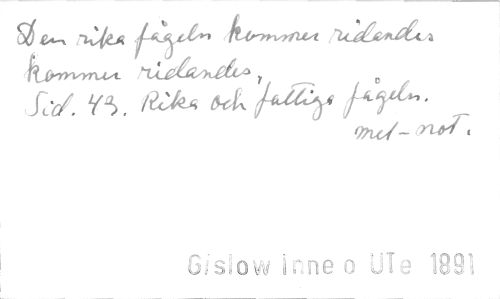 Den rika fågeln kommer ridandes
kommer ridandes,
Sid. 43. Rika och fattiga fågeln.
mel-not.
Gislow Inne o UTe 1891